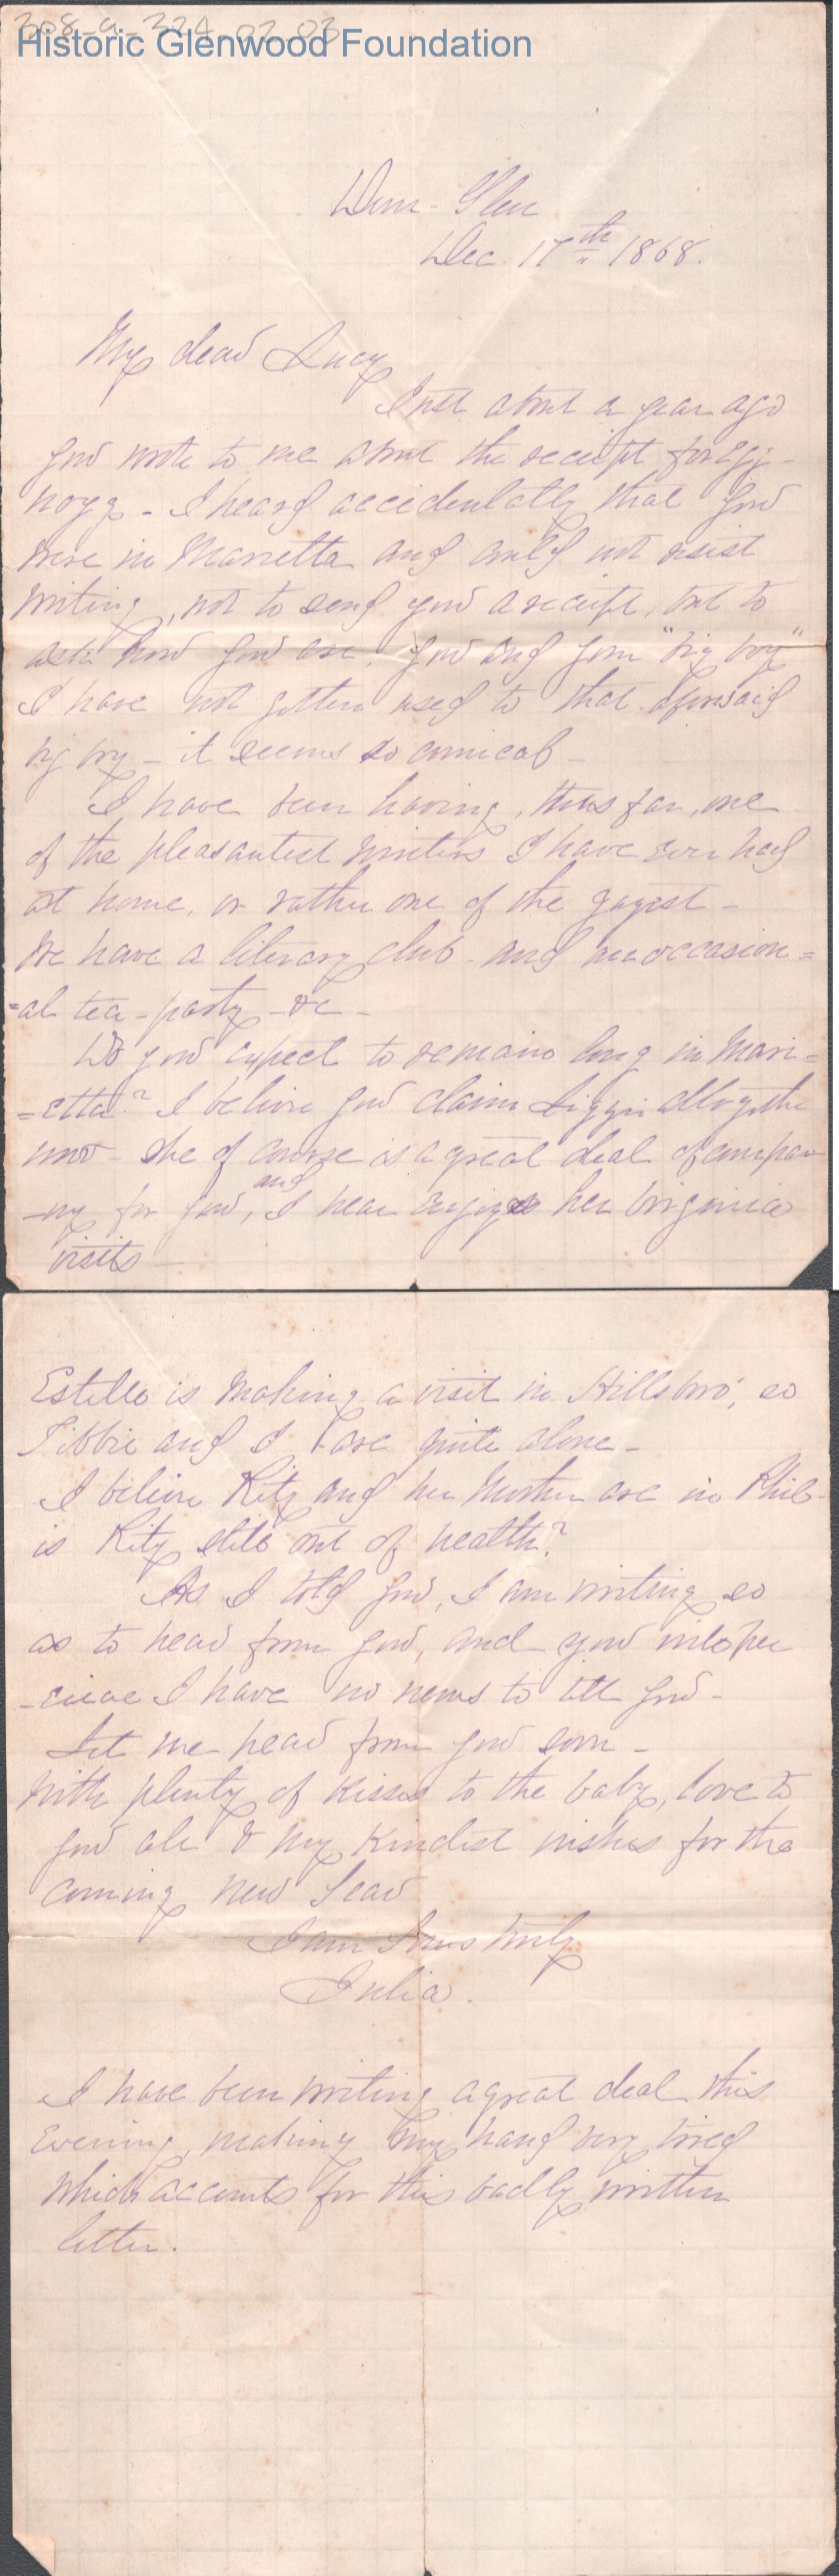 308-a-324-02-03
Historic Glenwood Foundation
Glen
Dec. 17th 1868.
My dear Lucy
Just about a year ago
you wrote to me about the receipt for egg-
nogg - I heard accidentally that you
were in Marietta and could not resist
writing, not to send you a receipt, but to
ask how you are, you and your "big boy"
I have not gotten used to that aforesaid
big boy - it seems so comical -
I have been having, thus far, one
of the pleasantest winters I have ever had
at home, or rather one of the gayest -
We have a literary club - and an occasion=
=al tea-party - &c -
Do you expect to remain long in Mari=
=etta? I believe you claim Lizzie altogether
now - she of course is a great deal of compa
-ny for you, and I hear enjoys her Virginia
visits -
Estelle is making a visit in Hillsboro', so
Tibbie and I are quite alone -
I believe Kity and her Mother are in Phil-
is Kity still out of health?
As I told you, I am writing so
as to hear from you, and you will per
-ceive I have no news to tell you -
Let me hear from you soon -
With plenty of kisses to the baby, love to
you all & my kindest wishes for the
coming New Year
I am Yours truly
Julia.
I have been writing a great deal this
Evening, making my hand very tired
which accounts for this badly written
letter.